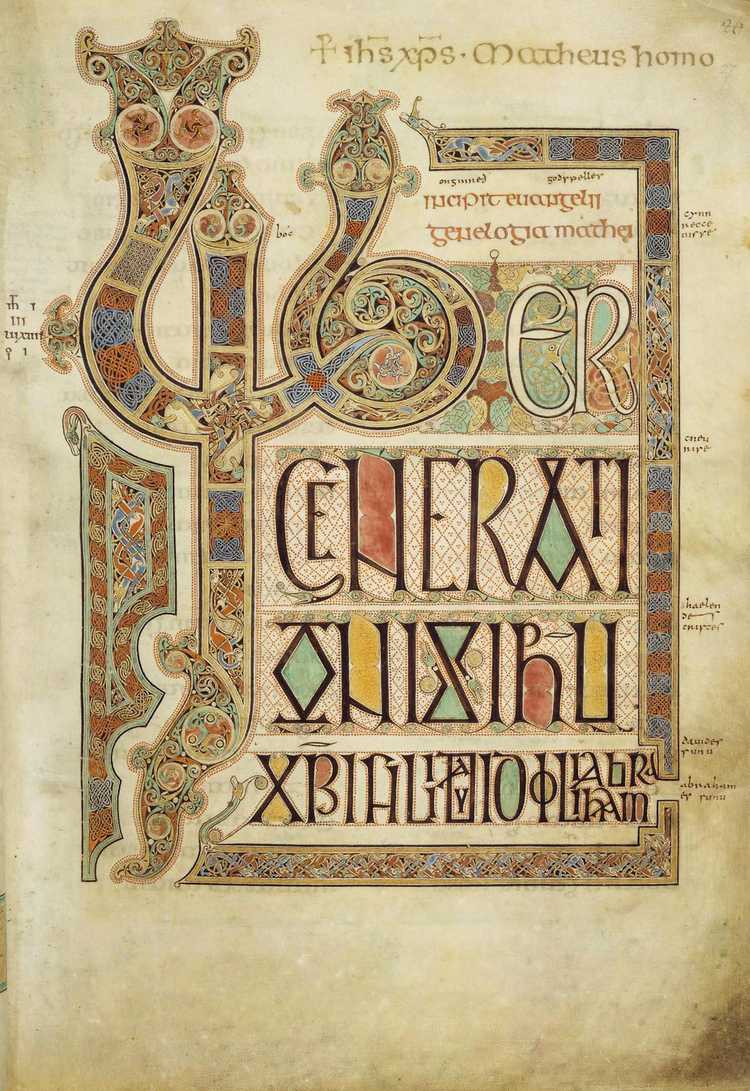 + ihs xps · Matheus homo
onginneð godspelles
incipit euangelii
genelogia mathei
boc
LIBER
cynn
recce
nisse
GENERATI
ONIS IHU
XPI FILII DAUID FILII ABRAHAM
haelen
des
cristes
dauides
sunu
abrahames
sunu